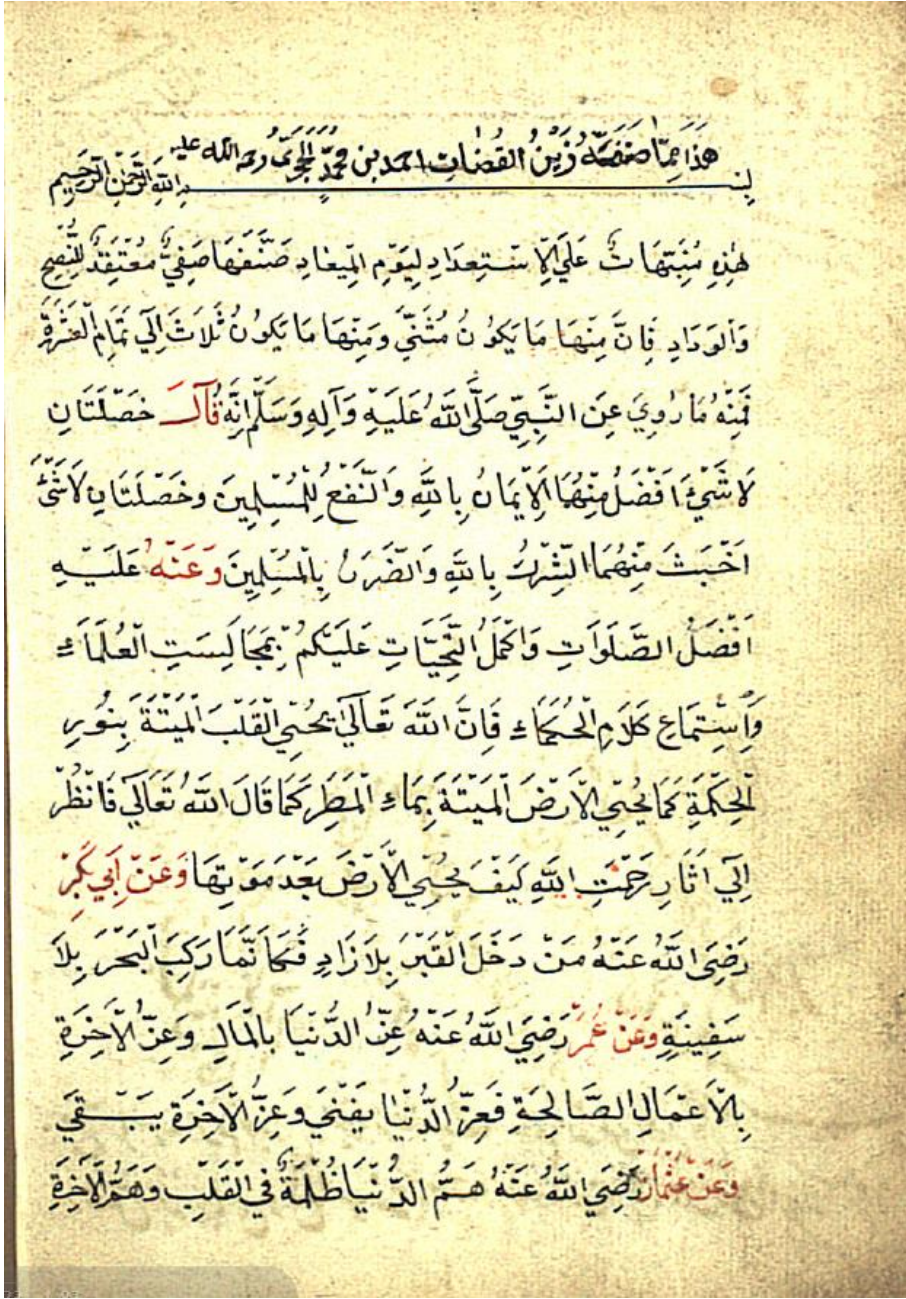 هَذَا مِمَّا صَنَّفَهُ زَيْنُ الْقُضَاتِ احمد بن مُحَمَّدٍ الْحَجَرِيّ رحمة الله عليه
بِسْمِ اللهِ الرَّحْمٰنِ الرَّحِيمِ
هٰذِهِ مُنَبِّهَاتٌ عَلَى الْاِسْتِعدَادِ لِيَوْمِ الْمِيعَادِ صَنَّفَهَا صَفِيٌّ مُعْتَقِدٌ لِلنُّصْحِ
وَالْوِدَادِ فَاِنَّ مِنْهَا مَا يَكُونُ مُثَنًّى وَمِنْهَا مَا يَكُونُ ثَلَاثَ اِلَى تَمَامِ الْعَشَرَةِ
فَمِنْهُ مَا رُوِيَ عَنِ النَّبِيِّ صَلَّى اللهُ عَلَيْهِ وَآلِهِ وَسَلَّمَ اِنَّهُ قَالَ خَصْلَتَانِ
لَا شَيْءَ اَفْضَلُ مِنْهُمَا اَلْاِيمَانُ بِاللهِ وَالنَّفْعُ لِلْمُسْلِمِينَ وَخَصْلَتَانِ لَا شَيْءَ
اَخْبَثَ مِنْهُمَا الشِّرْكُ بِاللهِ وَالضَّرَرُ بِالْمُسْلِمِينَ وَعَنْهُ عَلَيْهِ
اَفْضَلُ الصَّلَوَاتِ وَاَكْمَلُ التَّحِيَّاتِ عَلَيْكُمْ بِمَجَالَسَتِ الْعُلَمَاءِ
وَاسْتِمَاعِ كَلَامِ الْحُكَمَاءِ فَاِنَّ اللهَ تَعَالَى يُحْيِي الْقَلْبَ الْمَيْتَةَ بِنُورِ
الْحِكْمَةِ كَمَا يُحْيِي الْاَرْضَ الْمَيْتَةَ بِمَاءِ الْمَطَرِ كَمَا قَالَ اللهُ تَعَالَى فَانْظُرْ
اِلَى اٰثَارِ رَحْمَتِ اللهِ كَيْفَ يُحْيِي الْاَرْضَ بَعْدَ مَوْتِهَا وَعَنْ اَبِي بَكْرٍ
رَضِيَ اللهُ عَنْهُ مَنْ دَخَلَ الْقَبْرَ بِلَا زَادٍ فَكَاَنَّمَا رَكِبَ الْبَحْرَ بِلَا
سَفِينَةٍ وَعَنْ عُمَرَ رَضِيَ اللهُ عَنْهُ عِزُّ الدُّنْيَا بِالْمَالِ وَعِزُّ الْاٰخِرَةِ
بِالْاَعْمَالِ الصَّالِحَةِ فَعِزُّ الدُّنْيَا يَفْنَى وَعِزُّ الْاٰخِرَةِ يَبْقَى
وَعَنْ عُثْمَانَ رَضِيَ اللهُ عَنْهُ هَمُّ الدُّنْيَا ظُلْمَةٌ فِي الْقَلْبِ وَهَمُّ الْاٰخِرَةِ